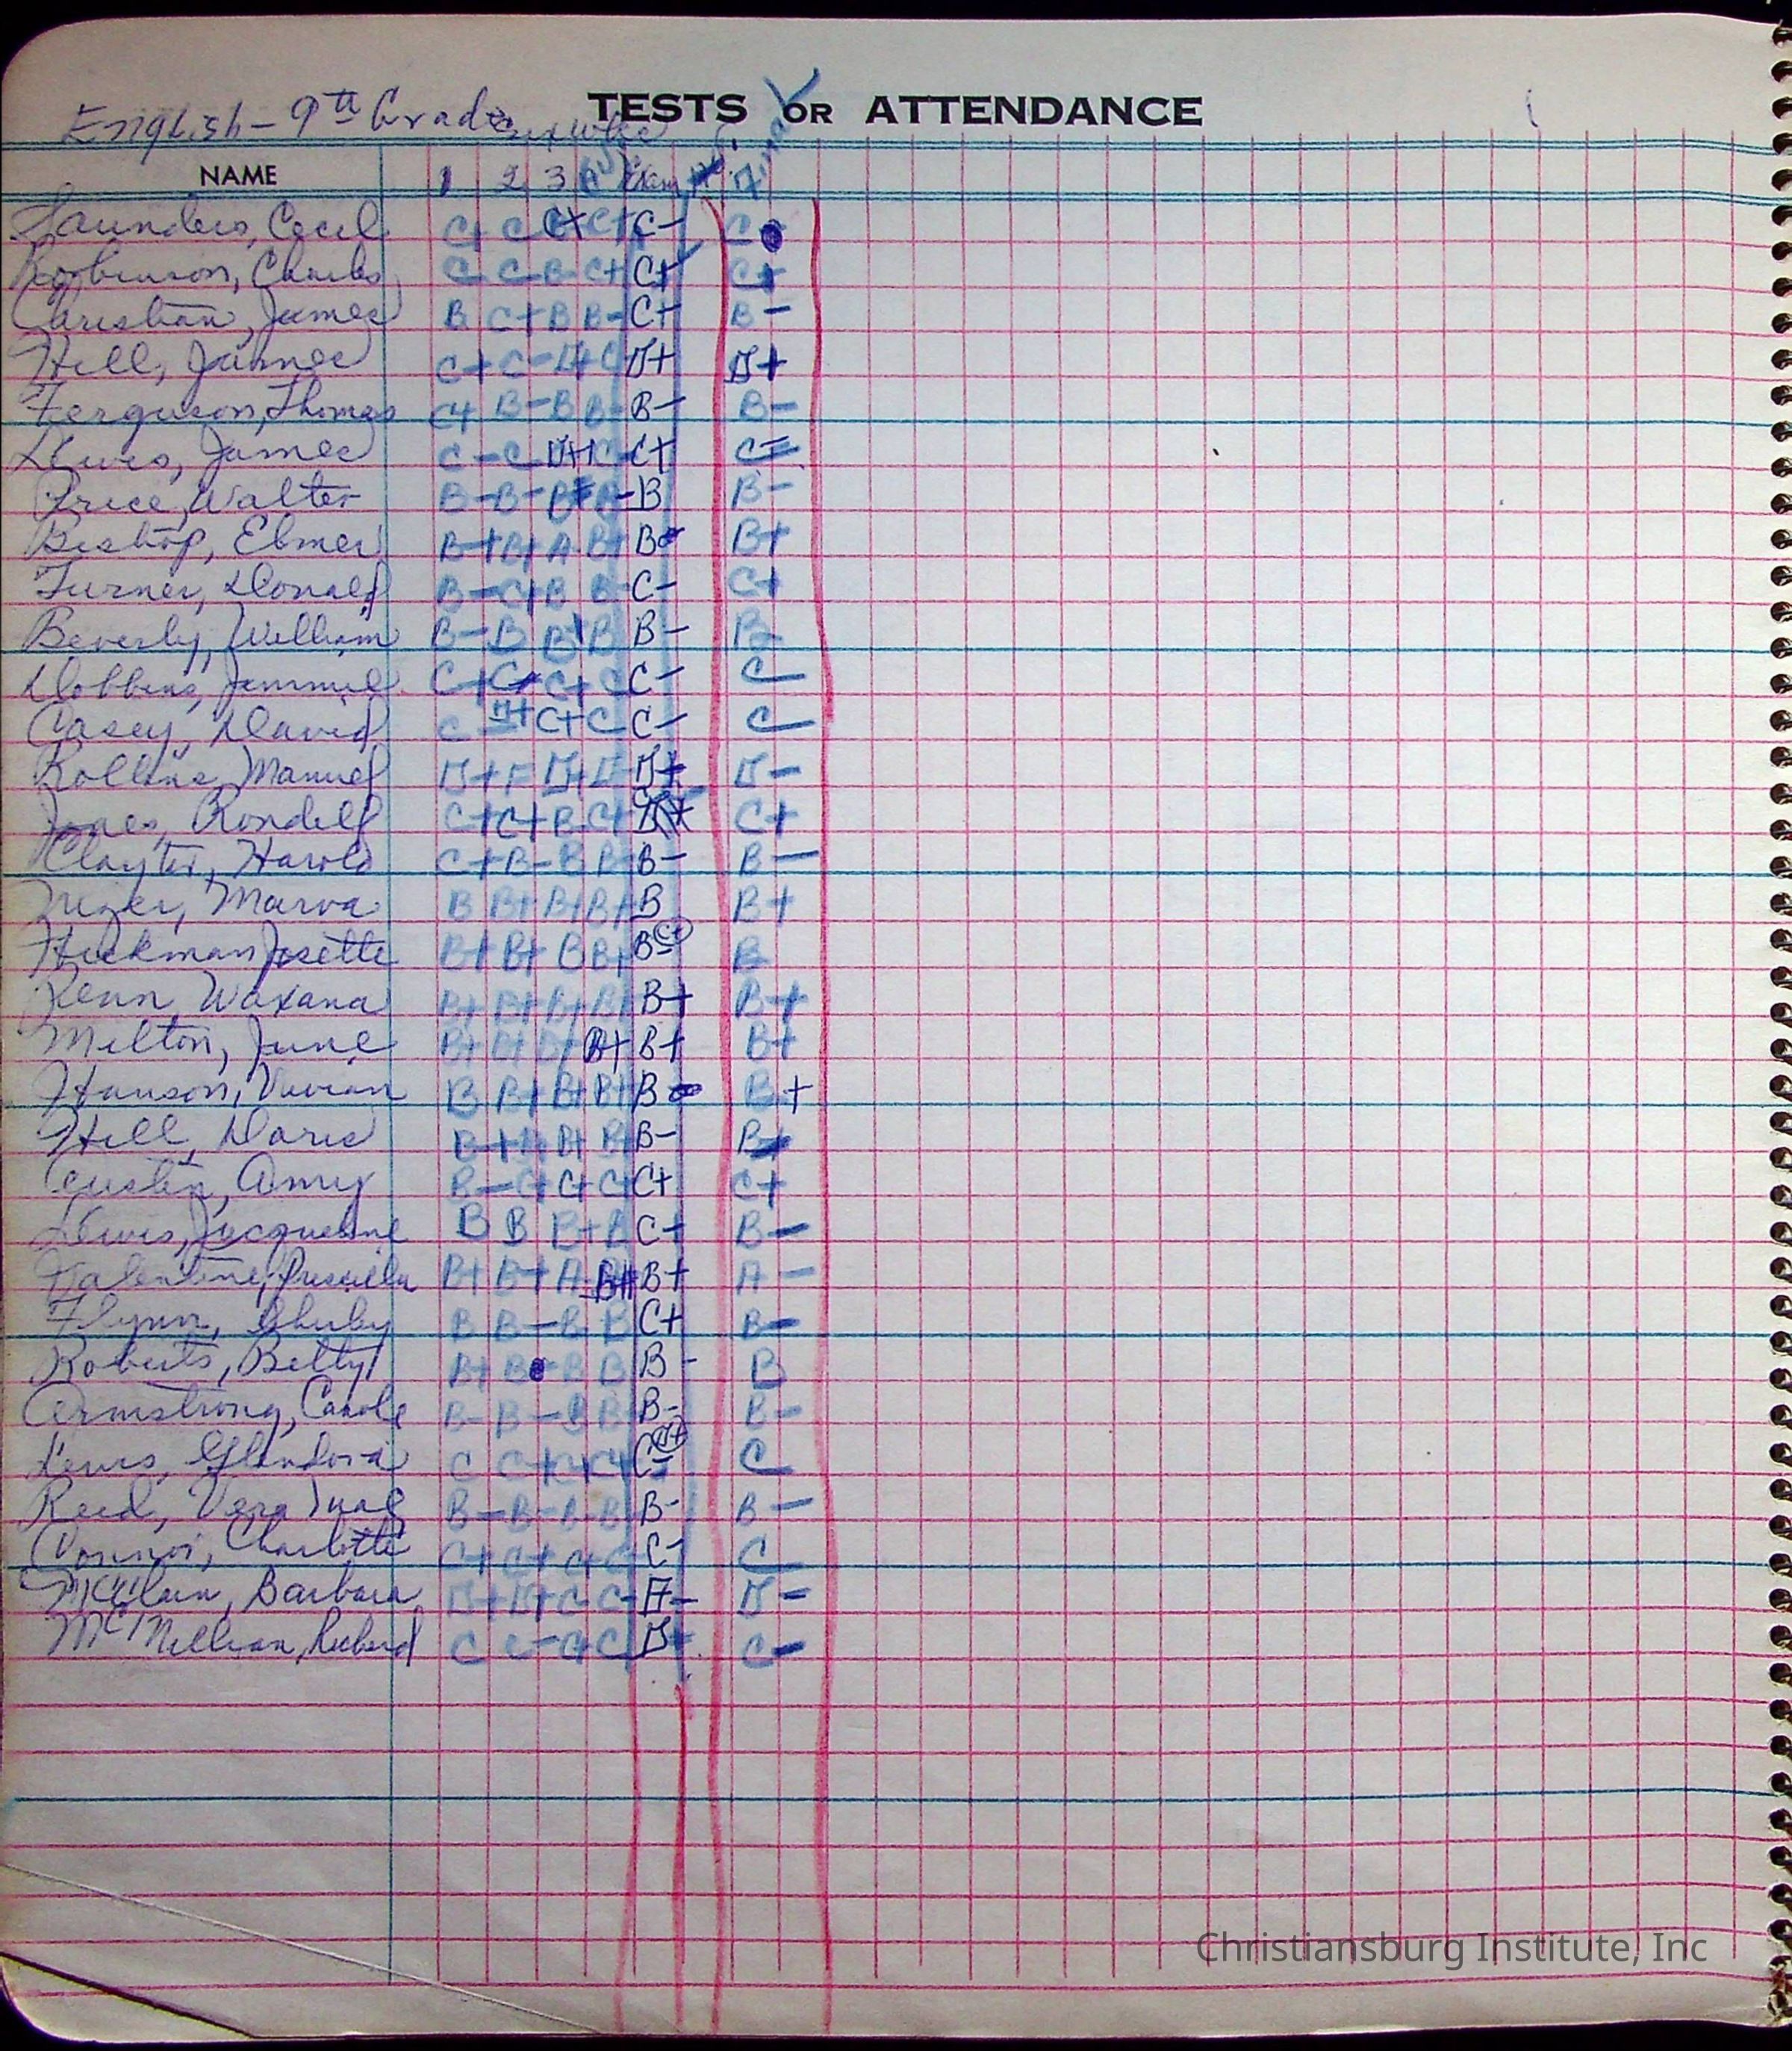 TESTS or ATTENDANCE
English - 9th Grade
NAME 1 2 3 Exam
Saunders, Cecil C+ C C+ C+ C- C
Robinson, Charles C C B- C+ C+ C+
Christian, James B C+ B B- C+ B-
Hill, James C+ C- D+ C D+ D+
Ferguson, Thomas C+ B- B B- B- B-
Lewis, James C- C D+ C+
Price, Walter B- B- B B- B-
Bishop, Elmer B+ B+ A B+ B B+
Turner, Donald B- C+ B B- C- C+
Beverly, William B- B B+ B B-
Dobbins, Jimmie C+ C C+ C C- C
Casey, David C- D+ C+ C C- C
Rollins, Manuel D+ F D+ D D+ D-
Jones, Rondell C+ C+ B C+ C+
Clayter, Harold C+ B- B B- B- B-
Marva B B+ B+ B+ B B+
Hickman, Josette B+ B+ B B+ B- C+ B
Penn, Waxana B+ B+ B+ B+ B+ B+
Milton, June B+ B+ B+ B+ B+ B+
Hanson, Vivian B B+ B+ B+ B B+
Hill, Doris B+ B+ B+ B- B+
Austin, Amy B- C+ C+ C+ C+ C+
Lewis, Jacqueline B B B+ B C+ B-
Valentine, Priscilla B+ B+ A B+ B+ A-
Flynn, Shirley B B- B B C+ B-
Roberts, Betty B+ B B B B- B
Armstrong, Carole B- B- B B B- B-
Lewis, Glendora C C+ C+ C+ C- D+ C
Reed, Vera Mae B- B- B B B- B-
Connor, Charlotte C+ C+ C+ C C- C
McClain, Barbara D+ D+ C- C- F- D-
McMillian, Richard C C- C+ C D+ C-
Christiansburg Institute, Inc